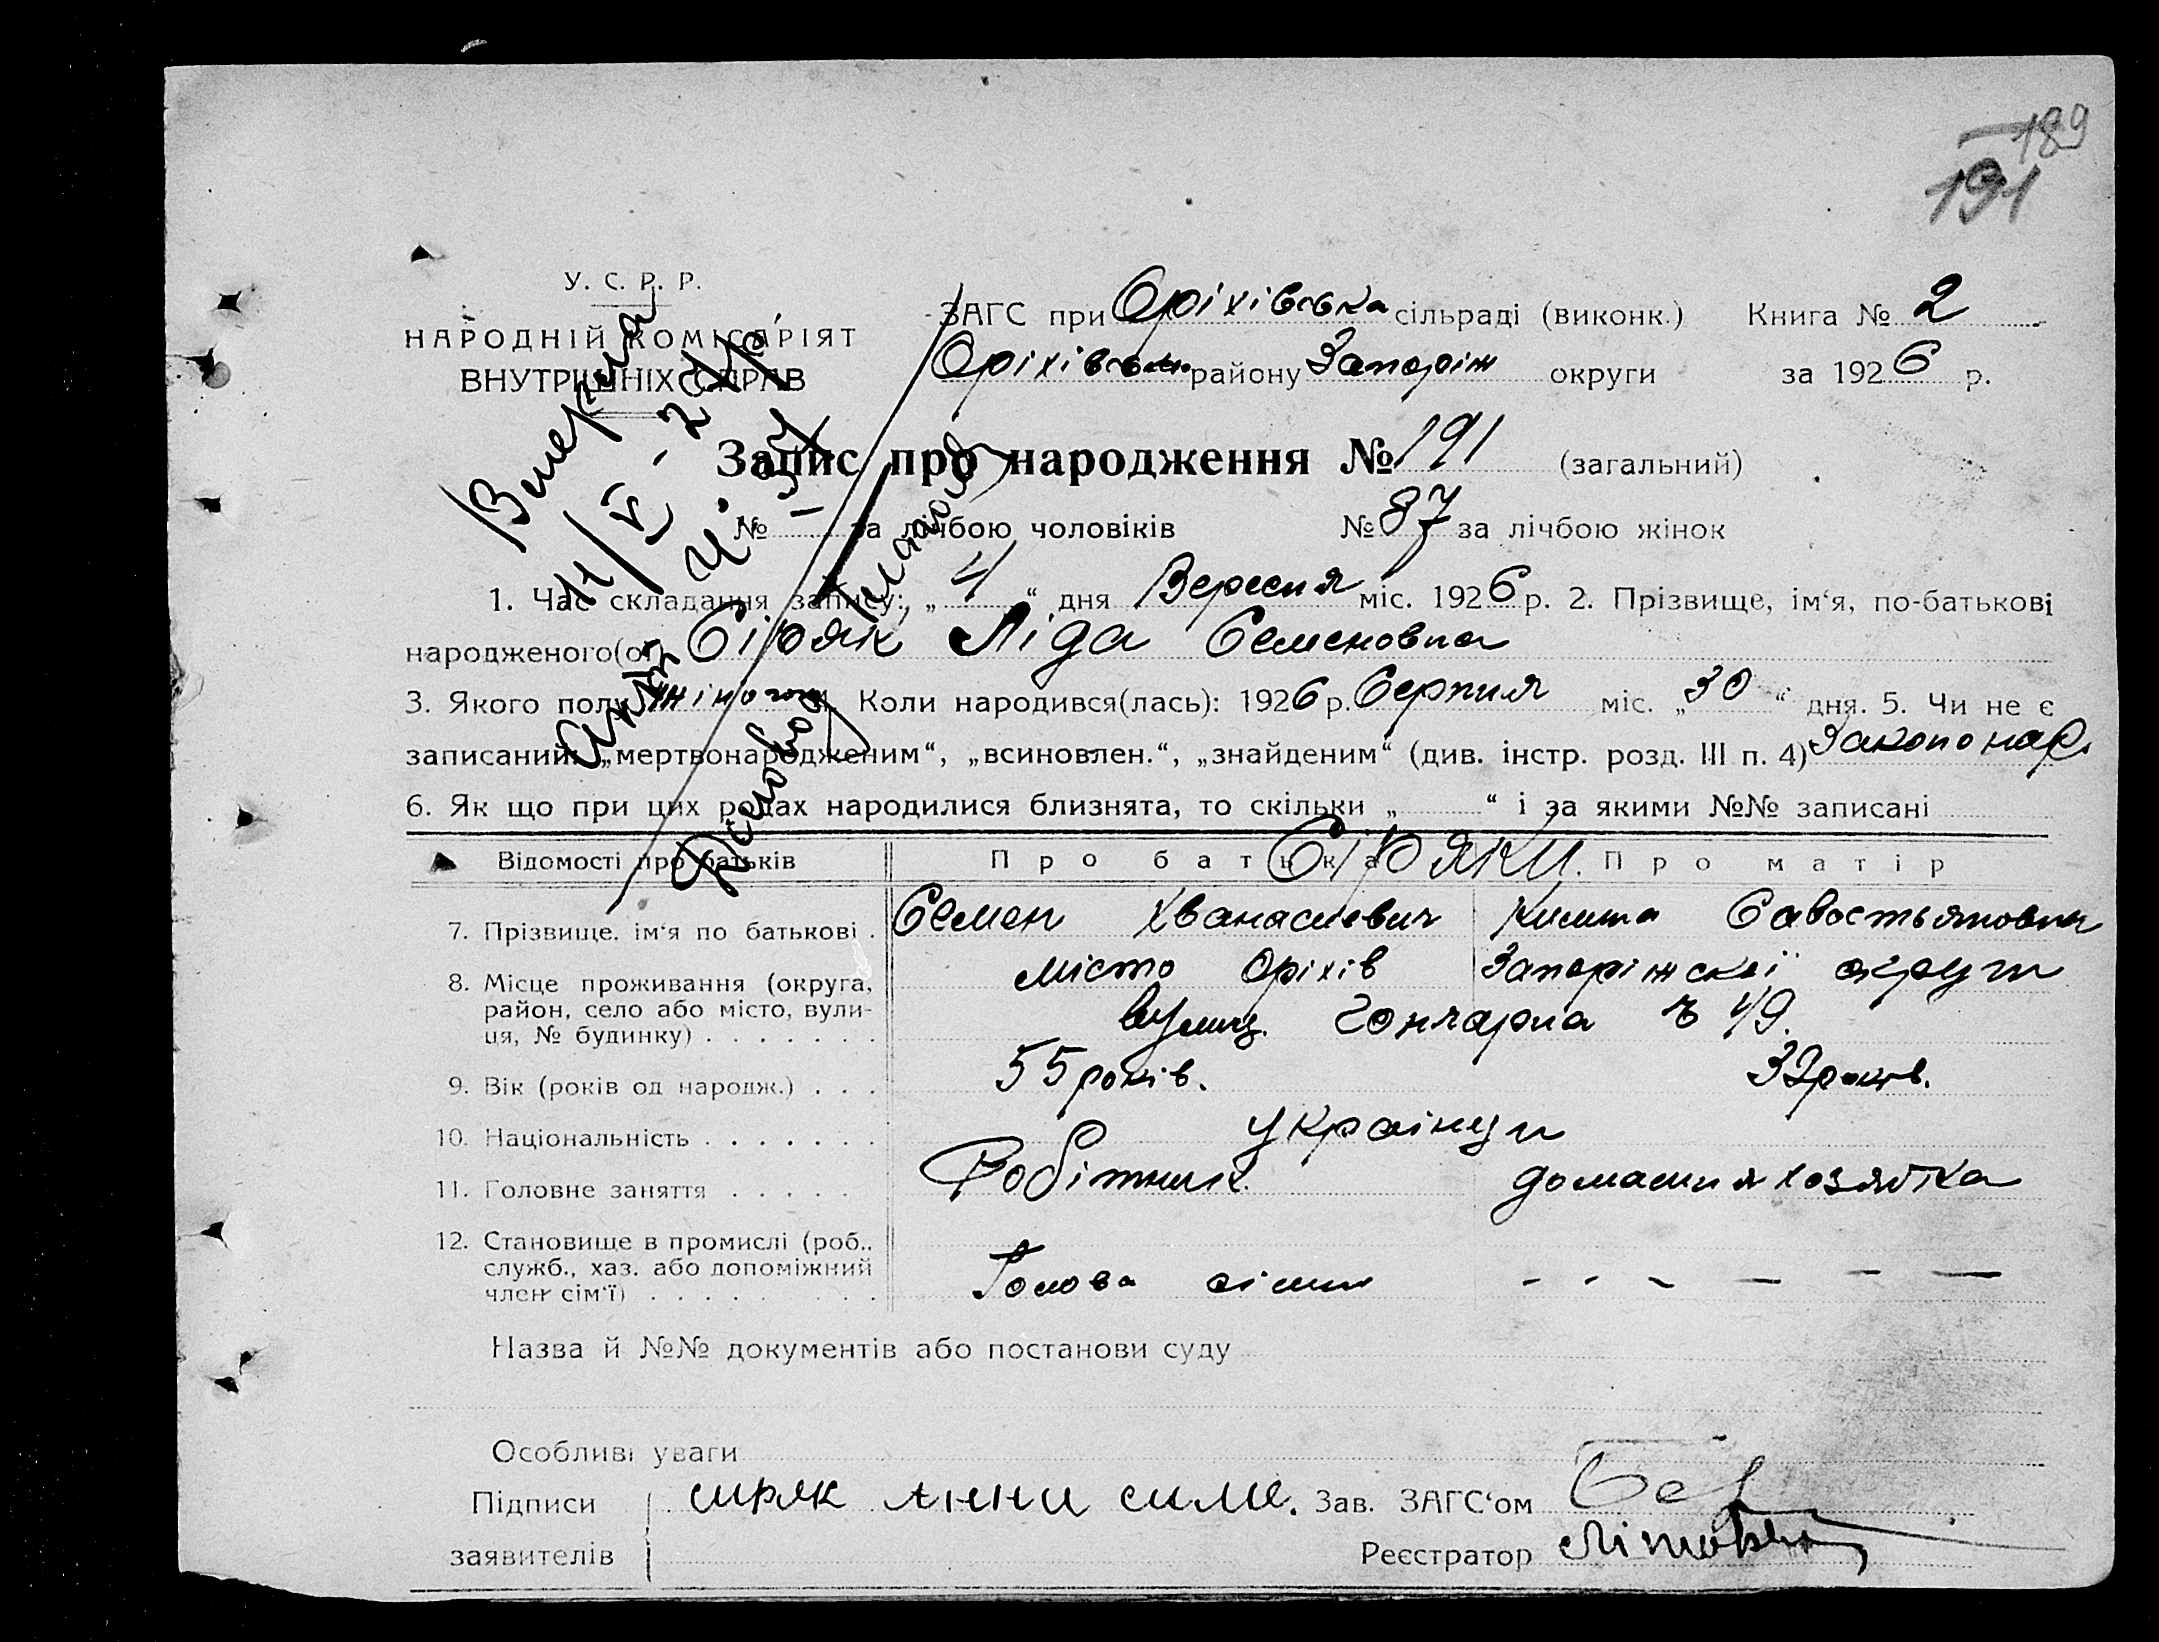 189
191
У. С. Р. Р.
НАРОДНІЙ КОМІСАРІЯТ
ВНУТРІШНІХ СПРАВ
ЗАГС при Оріхівська сільраді (виконк.) Книга № 2
Оріхівськ району Запоріж округи за 1926 р.
Запис про народження № 191 (загальний)
№ за лічбою чоловіків № 87 за лічбою жінок
1. Час складання запису: „4“ дня Вересня міс. 1926 р. 2. Прізвище, ім‘я, по-батькові
народженого(ої) Сіряк Ліда Семеновна
3. Якого полу жіночого 4. Коли народився(лась): 1926 р. Серпня міс. „30“ дня. 5. Чи не є
записаний: „мертвонародженим“, „всиновлен.“, „знайденим“ (див. інстр. розд. III п. 4) Законо нар.
6. Як що при цих родах народилися близнята, то скільки „ “ і за якими №№ записані
Відомості про батьків Про батька Сіряки. Про матір
7. Прізвище. ім‘я по батькові . Семен Хванасиевич Савостьяновна
8. Місце проживання (округа, місто Оріхів Запоріжскої округи
район, село або місто, вули-
ця, № будинку) . . . . . . . вулиц. Гончарна 49.
9. Вік (років од народж.) . . . 55 років. 32 років.
10. Національність . . . . . . . українци
11. Головне заняття . . . . . Робітник. домашня хозяйка
12. Становище в промислі (роб.,
служб., хаз. або допоміжний Голова сімии - - - - - -
член сім‘ї) . . . . . . . . .
Назва й №№ документів або постанови суду
Особливі уваги
Підписи сиряк Анни симе. Зав. ЗАГС‘ом
заявителів Реєстратор
Вмерла